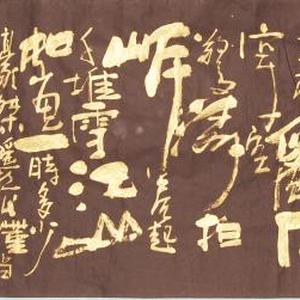 穿空
驚濤拍
岸卷起
千堆雪江山
如畫一時多少
豪傑遥想公瑾当